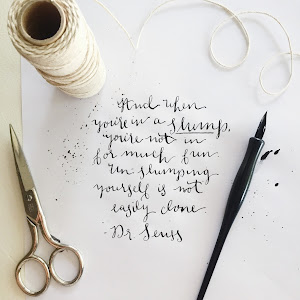 And when
you're in a slump,
you're not in
for much fun.
Un-slumping
yourself is not
easily done.
-Dr Seuss